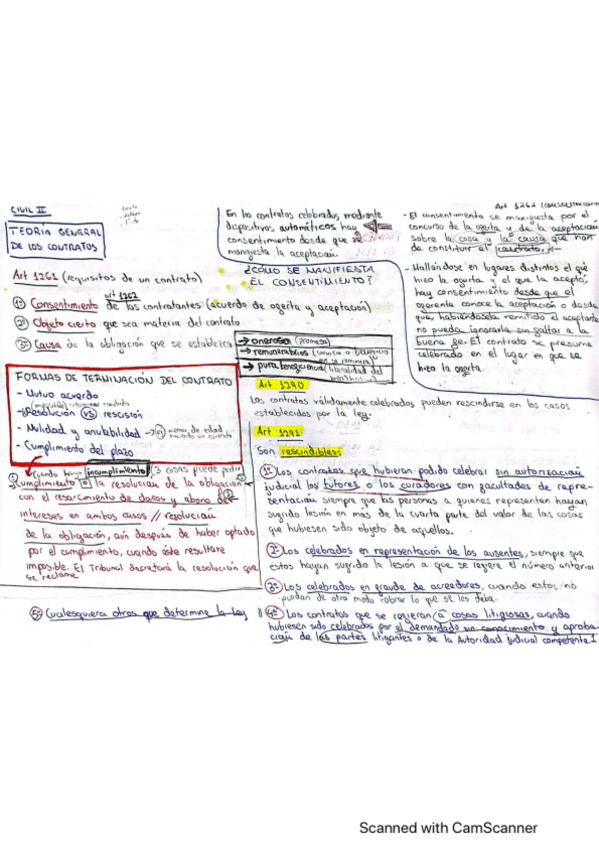 CIVIL II
TEORÍA GENERAL
DE LOS CONTRATOS
En los contratos celebrados mediante
dispositivos automáticos hay
consentimiento desde que se
manifiesta la aceptación.
¿CÓMO SE MANIFIESTA
EL CONSENTIMIENTO?
Art 1262
- El consentimiento se manifiesta por el
concurso de la oferta y de la aceptación
sobre la cosa y la causa que han
de constituir el contrato.
- Hallándose en lugares distintos el que
hizo la oferta y el que la aceptó,
hay consentimiento desde que el
oferente conoce la aceptación o desde
que, habiéndosela remitido el aceptante
no pueda ignorarla sin faltar a la
buena fe. El contrato se presume
celebrado en el lugar en que se
hizo la oferta.
Art 1261 (requisitos de un contrato)
art 1262
1º Consentimiento de los contratantes (acuerdo de oferta y aceptación)
2º Objeto cierto que sea materia del contrato
3º Causa de la obligación que se establezca
→ onerosa (promesa)
→ remuneratorios (servicio o beneficio
→ pura beneficencia (liberalidad del
FORMAS DE TERMINACIÓN DEL CONTRATO
- Mutuo acuerdo
- Resolución VS rescisión
- Nulidad y anulabilidad → ej menor de edad
- Cumplimiento del plazo
(cuando hay incumplimiento) 3 cosas puede pedir
Cumplimiento o la resolución de la obligación
con el resarcimiento de daños y abono de
intereses en ambos casos // resolución
de la obligación, aún después de haber optado
por el cumplimiento, cuando éste resultare
imposible. El Tribunal decretará la resolución que
se reclame
5º Cualesquiera otros que determine la ley
Art 1290
Los contratos válidamente celebrados pueden rescindirse en los casos
establecidos por la ley.
Art 1291
Son rescindibles:
1º Los contratos que hubieran podido celebrar sin autorización
judicial los tutores o los curadores con facultades de repre-
sentación siempre que las personas a quienes representen hayan
sufrido lesión en más de la cuarta parte del valor de las cosas
que hubiesen sido objeto de aquellos.
2º Los celebrados en representación de los ausentes, siempre que
estos hayan sufrido la lesión a que se refiere el número anterior
3º Los celebrados en fraude de acreedores, cuando estos no
puedan de otro modo cobrar lo que se les deba.
4º Los contratos que se refieran a cosas litigiosas, cuando
hubiesen sido celebrados por el demandado sin conocimiento y aproba-
ción de las partes litigantes o de la Autoridad judicial competente
Scanned with CamScanner